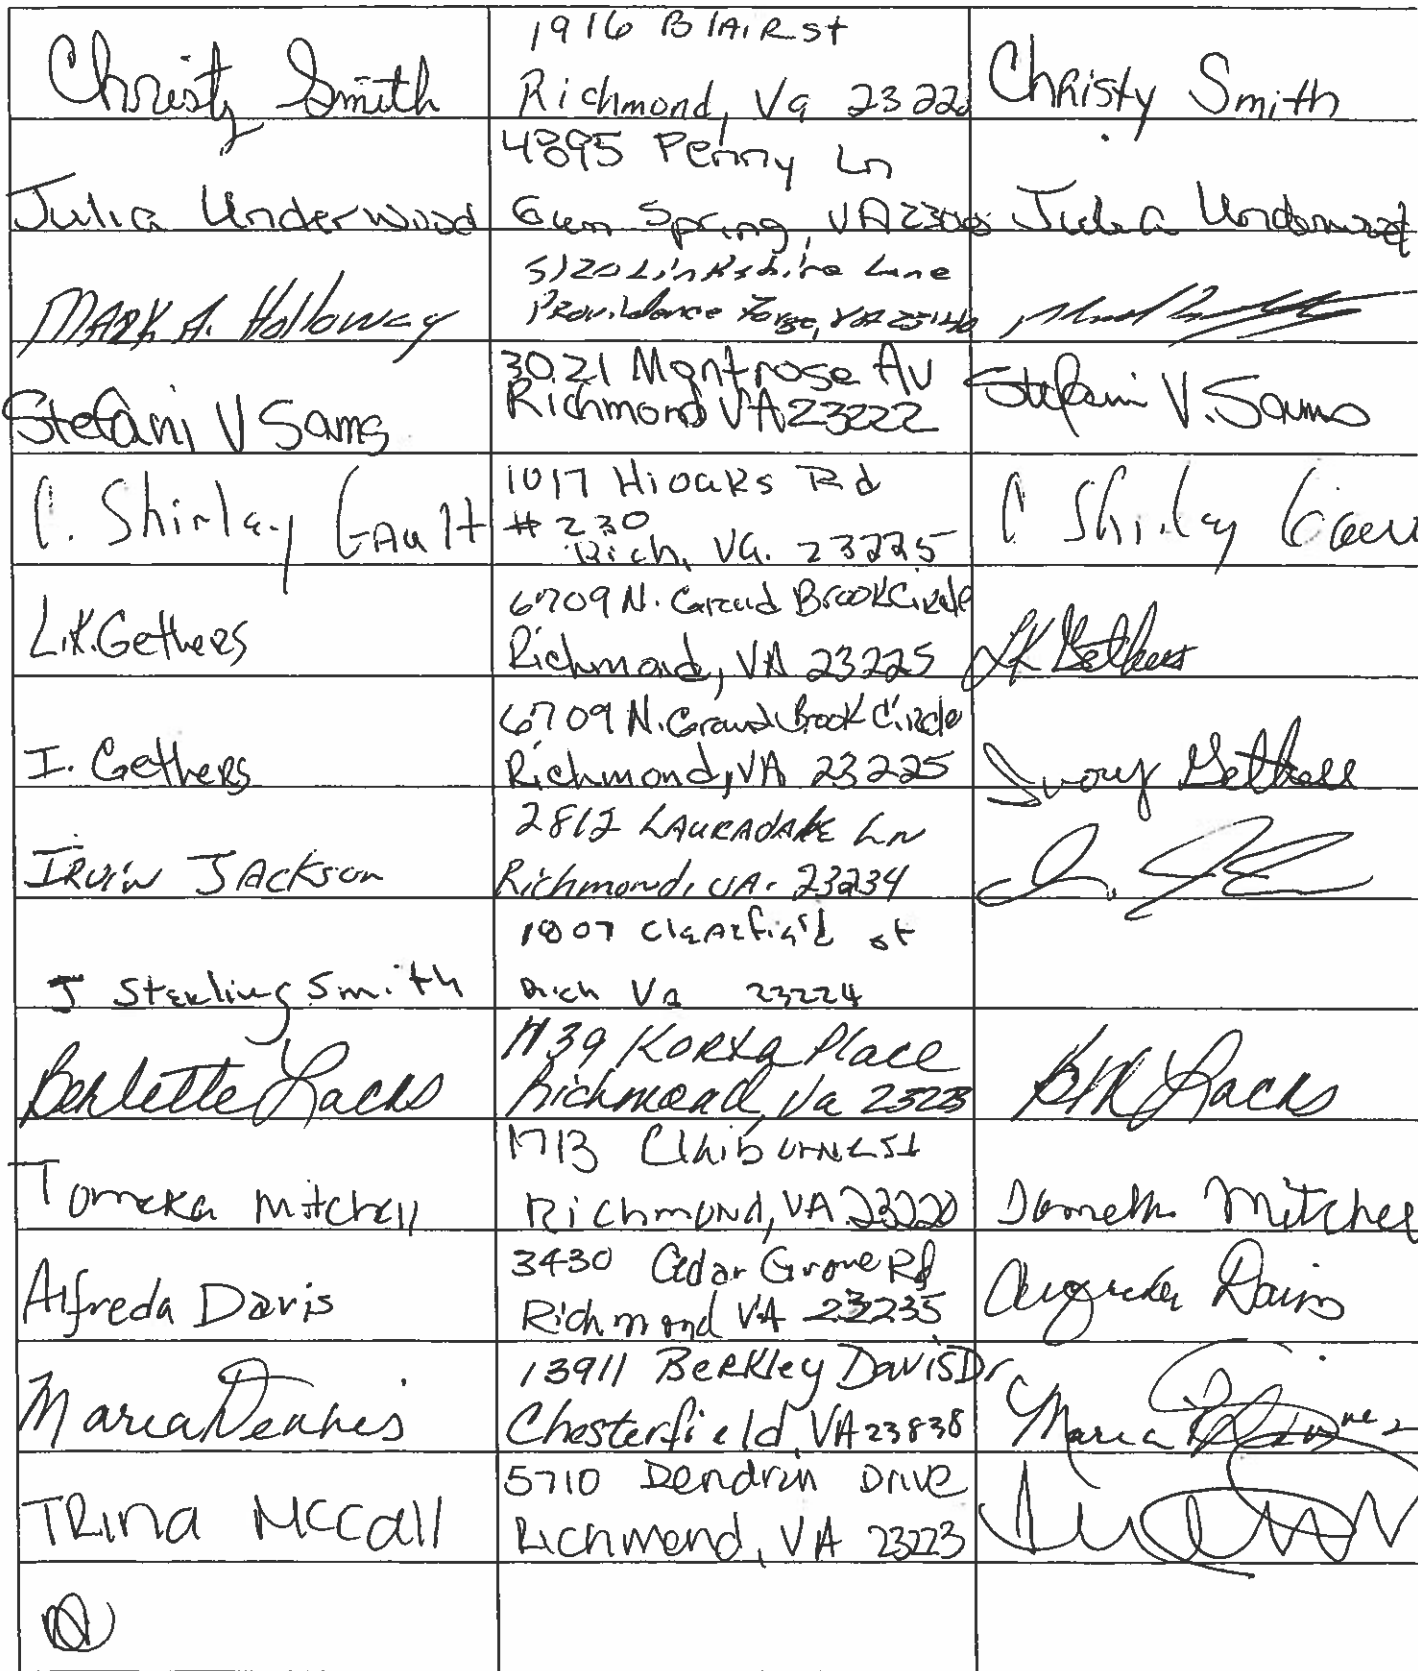 Christy Smith
1916 Blair st
Richmond, Va 23220
Christy Smith
Julia Underwood
4895 Penny Ln
Gum Spring, VA 2306
Julia Underwood
Mark A. Holloway
5120 Linkshire Lane
Providence Forge, VA 23140
Stefani V Sams
3021 Montrose Av
Richmond VA 23222
Stefani V. Sams
C. Shirley Gault
1017 Hioaks Rd
# 230
Rich, Va. 23225
C Shirley Gau
L.K. Gethers
6709 N. Grand Brook Circle
Richmond, VA 23225
LK Gethers
I. Gethers
6709 N. Grand Brook Circle
Richmond, VA 23225
Ivory Gethers
Irvin Jackson
2812 Lauradale Ln
Richmond, VA. 23234
J Sterling Smith
1807 Clearfield st
Rich Va 23224
Berlette Lacks
1139 Place
Richmond, Va 23223
Lacks
Tomeka Mitchell
1713 Claiburne St
Richmond, VA 23220
Mitchel
Alfreda Davis
3430 Cedar Grove Rd
Richmond VA 23235
Davis
Maria Dennis
13911 Berkley Davis Dr
Chesterfield, VA 23838
Maria
Trina McCall
5710 Dendron Drive
Richmond, VA 23223